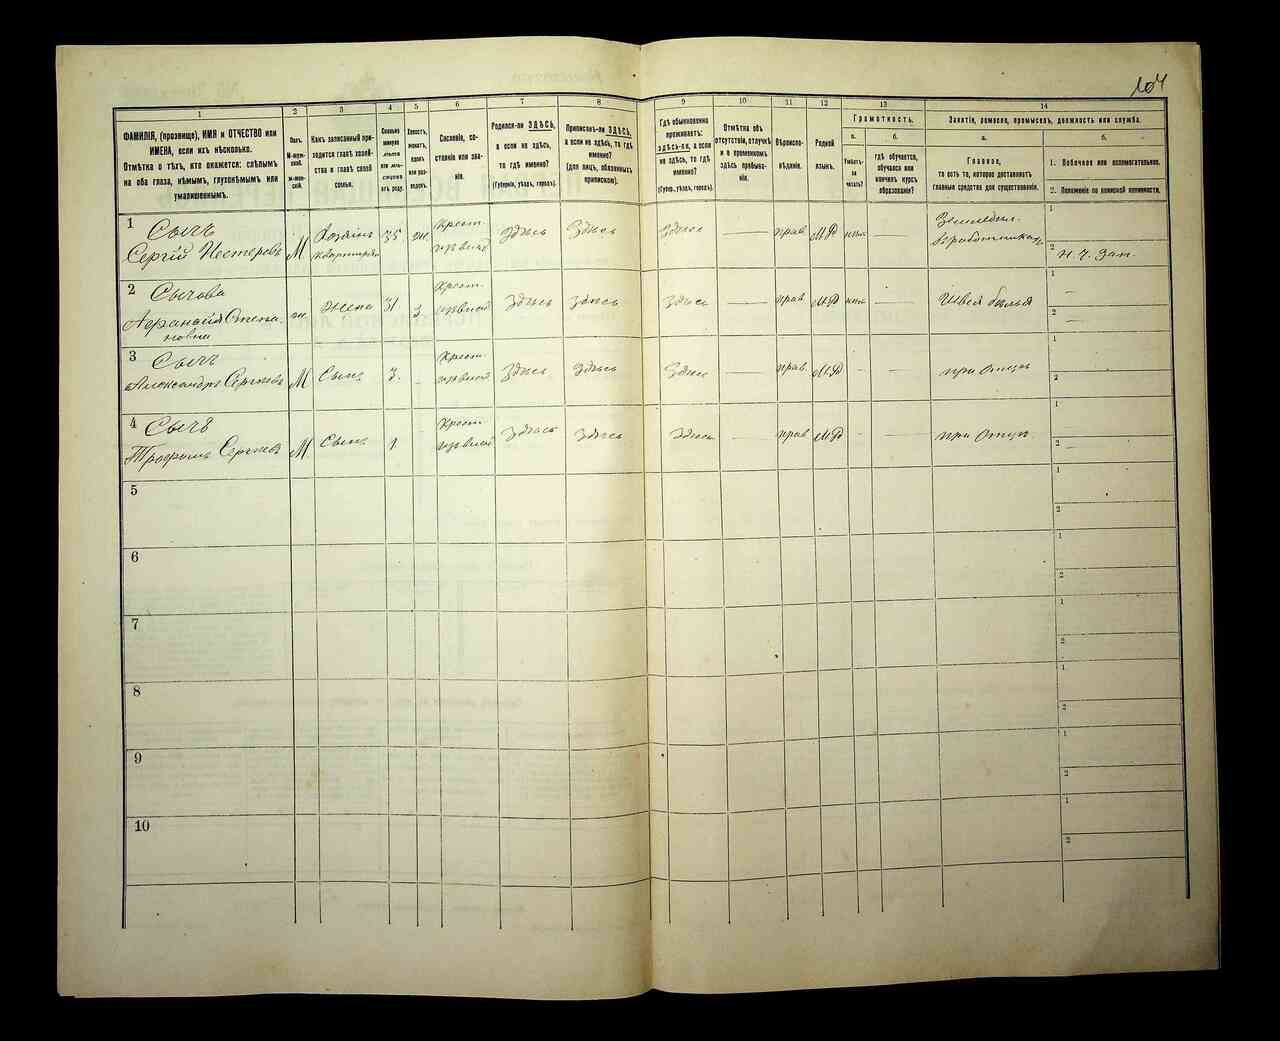 104
1
2
3
4
5
6
7
8
9
10
11
12
13
14
ФАМИЛІЯ, (прозвище), ИМЯ и ОТЧЕСТВО или
ИМЕНА, если ихъ нѣсколько.
Отмѣтка о тѣхъ, кто окажется: слѣпымъ
на оба глаза, нѣмымъ, глухонѣмымъ или
умалишеннымъ.
Полъ.
М-мужской.
Ж-женскій.
Какъ записанный приходится
главѣ хозяйства
и главѣ своей
семьи.
Сколько
минуло
лѣтъ
или мѣсяцевъ
отъ роду.
Холостъ,
женатъ,
вдовъ
или разведенъ.
Сословіе, состояніе
или званіе.
Родился-ли ЗДѢСЬ,
а если не здѣсь,
то гдѣ именно?
(Губернія, уѣздъ, городъ).
Приписанъ-ли ЗДѢСЬ,
а если не здѣсь, то гдѣ
именно?
(для лицъ, обязанныхъ
припискою).
Гдѣ обыкновенно
проживаетъ:
здѣсь-ли, а если
не здѣсь, то гдѣ
именно?
(Губерн., уѣздъ, городъ).
Отмѣтка объ
отсутствіи, отлучкѣ
и о временномъ
здѣсь пребываніи.
Вѣроисповѣданіе.
Родной
языкъ.
Грамотность.
а.
Умѣетъ-ли
читать?
б.
гдѣ обучается,
обучался или
кончилъ курсъ
образованія?
Занятіе, ремесло, промыселъ, должность или служба.
а.
Главное,
то есть то, которое доставляетъ
главныя средства для существованія.
б.
1. Побочное или вспомогательное.
2. Положеніе по воинской повинности.
1
Сычъ
Сергій Нестеровъ
М
Хозяинъ
квартиры
35
ж.
Крест.
Здѣсь
Здѣсь
Здѣсь
прав
МР
Земледѣл.
2
Сычова
Степановна
ж.
Жена
31
3
Крест.
Здѣсь
Здѣсь
Здѣсь
прав
МР
Швея бѣлья
3
Сычъ
Александръ Сергѣевъ
М
Сынъ
3.
Крест.
Здѣсь
Здѣсь
Здѣсь
прав
МР
при Отцѣ
4
Сычъ
Трофимъ Сергѣевъ
М
Сынъ
1
Крест.
Здѣсь
Здѣсь
Здѣсь
прав
МР
при Отцѣ
5
6
7
8
9
10